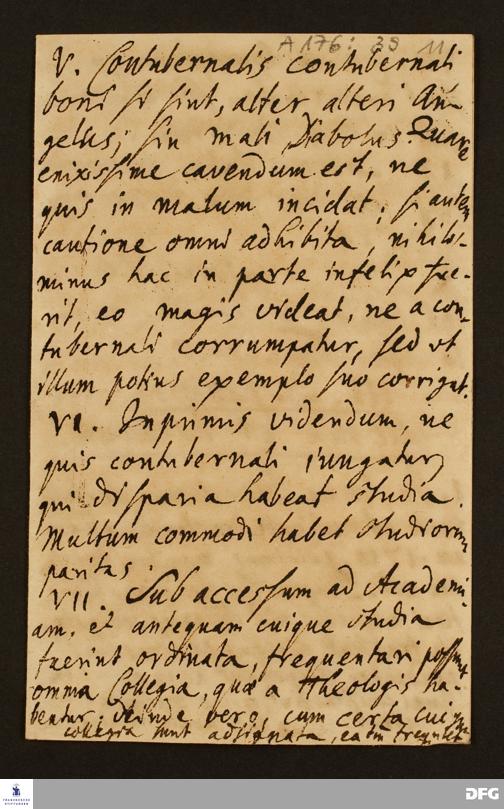 A 176 : 39 11
V. Contubernalis contubernali
boni si sint, alter alteri An-
gelus; sin mali Diabolus. Quare
enixissime cavendum est, ne
quis in malum incidat; si autem
cautione omni adhibita, nihilo-
minus hac in parte infelix fue-
rit, eo magis videat, ne a con-
tubernali corrumpatur, sed ut
illum potius exemplo suo corrigat.
VI. Inprimis videndum, ne
quis contubernali jungatur,
qui disparia habeat studia.
Multum commodi habet studiorum
paritas.
VII. Sub accessum ad Academi-
am, et antequam cuique studia
fuerint ordinata, frequentari possunt
omnia Collegia, quæ a Theologis ha-
bentur; deinde vero, cum certa cuique
collegia sunt adsignata, ea
FRANCKESCHE
STIFTUNGEN
DFG